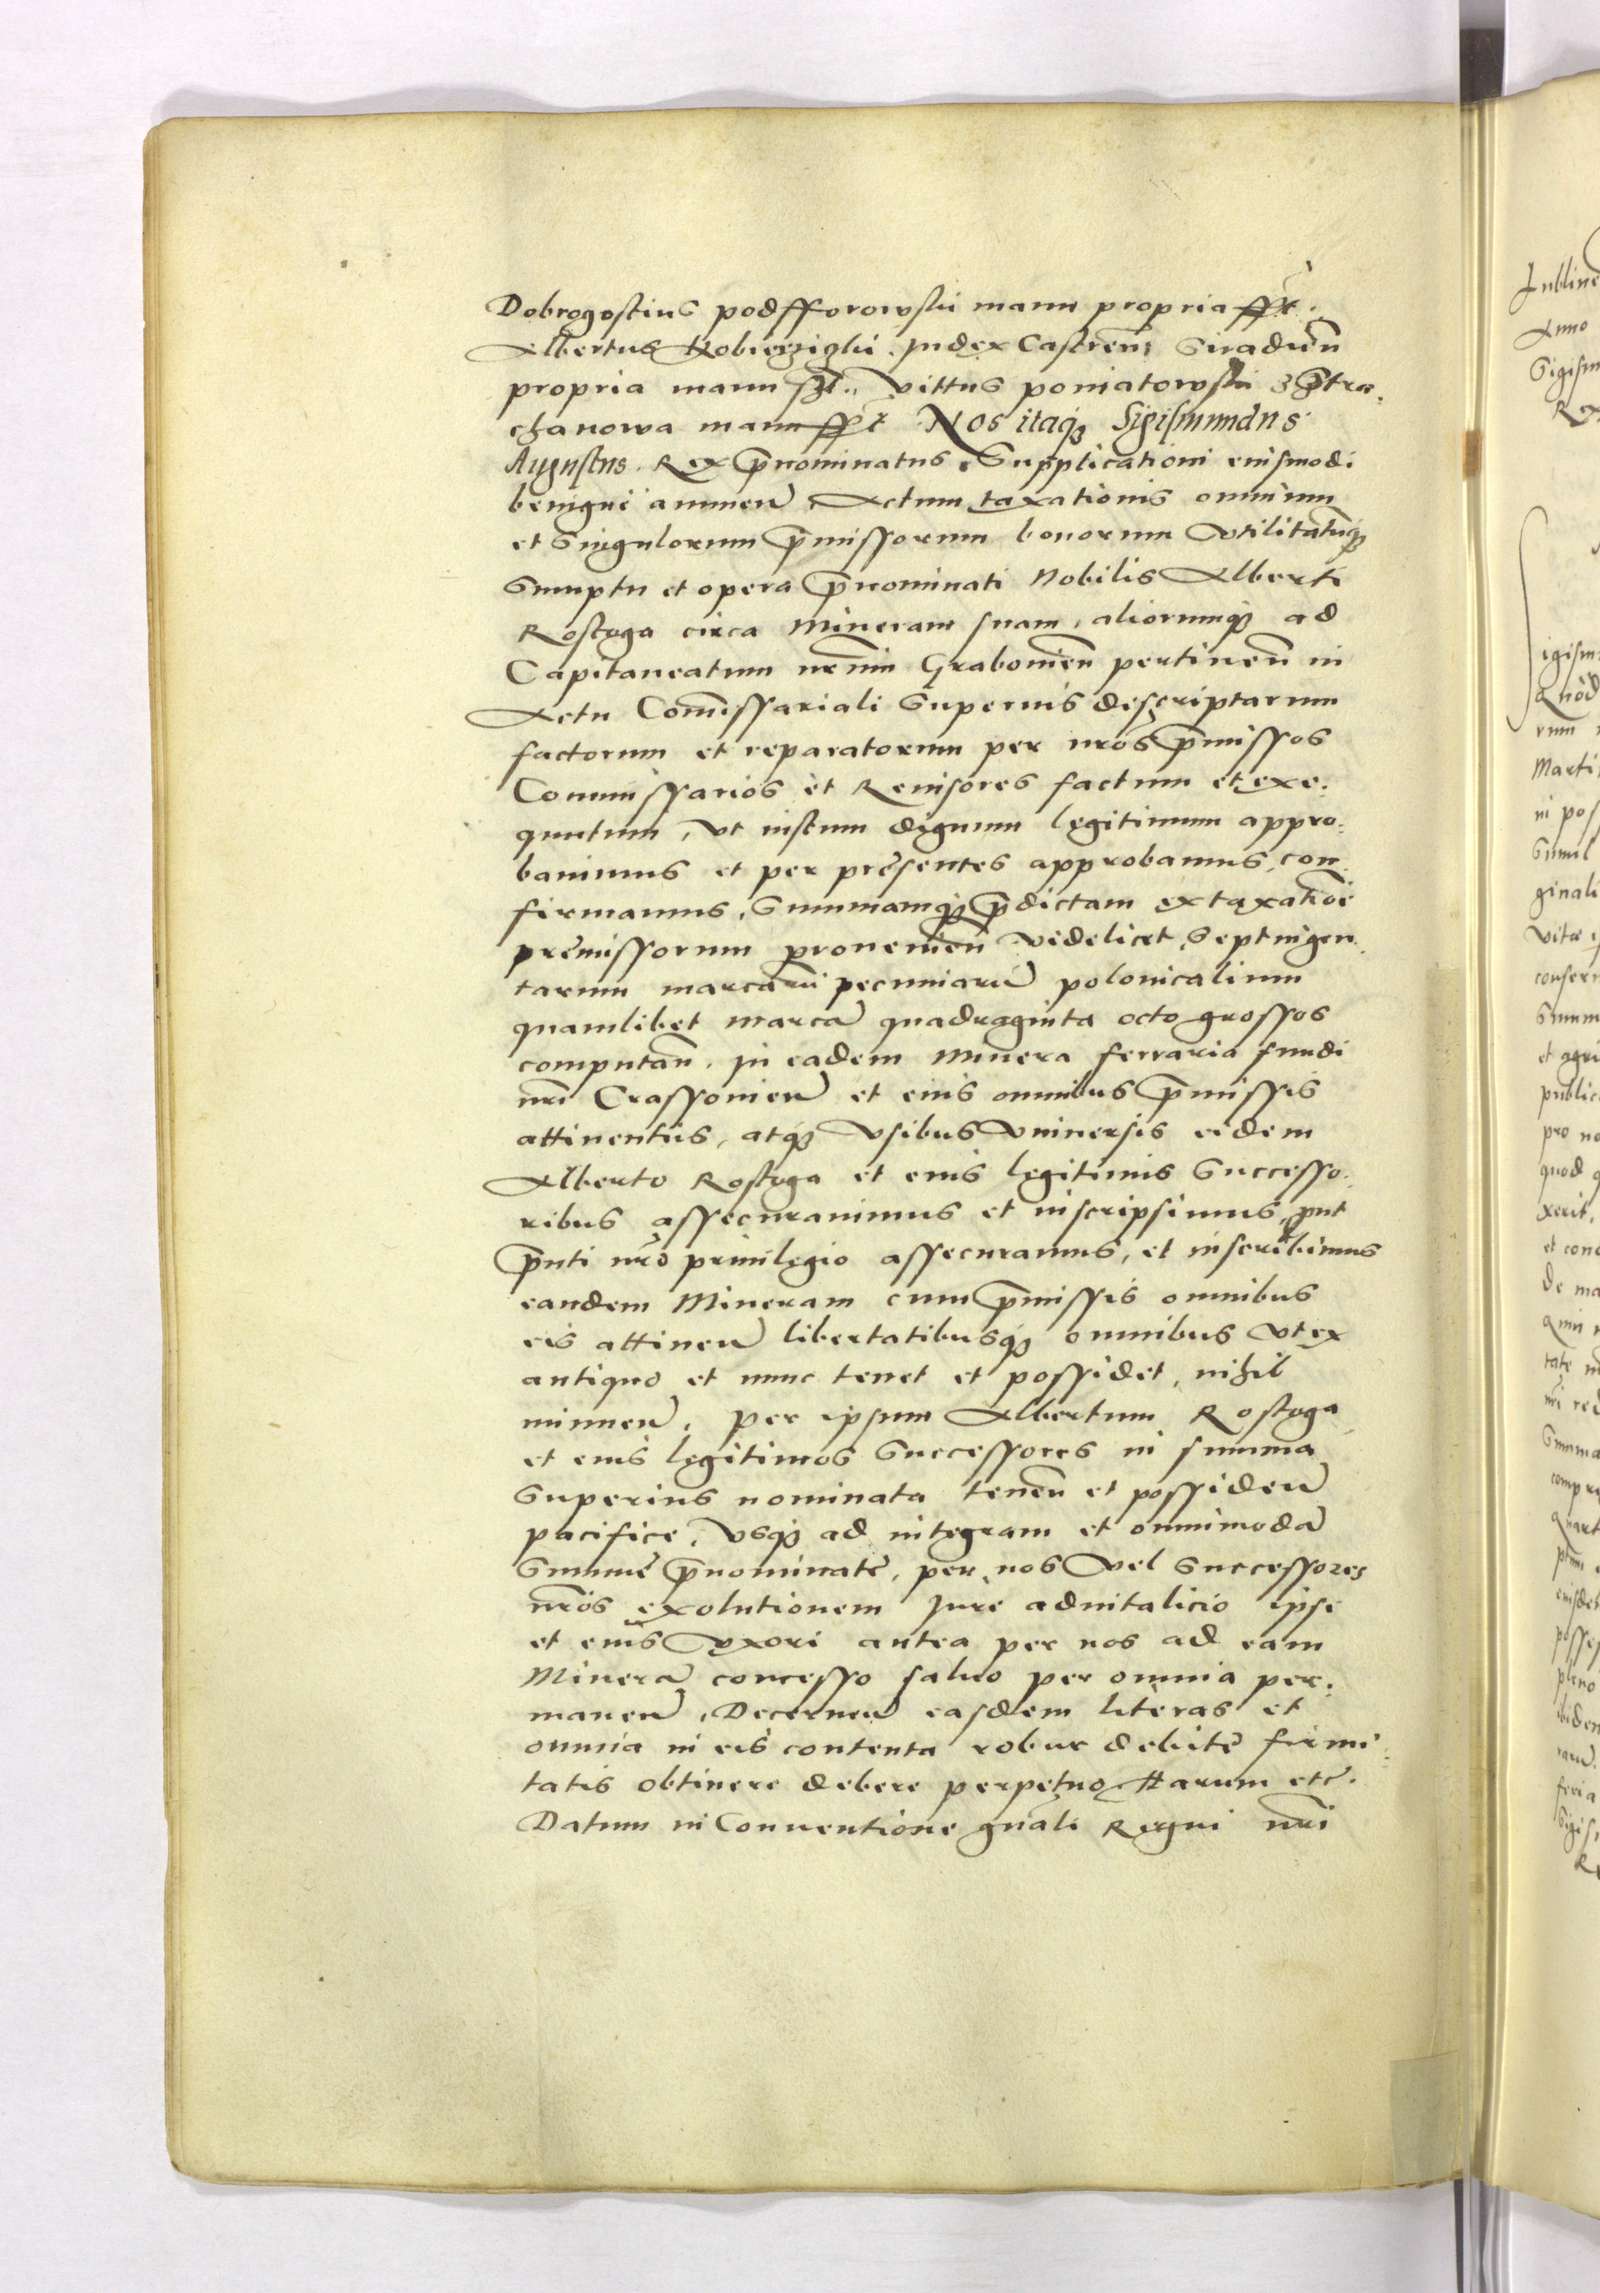 Dobrogostius podfforowskii manu propria sst.
Albertus Kobierziglii Judex Castren̄ Siradien̄
propria manu sst., Vittus poniatowskii Z Stra-
chanowa manu ppr̄ Nos itaq3 Sigismundus
Augustus Rex p̄nominatus Supplicationi eiusmodi
benigne annuen̄ Actum taxationis omnium
et Singulorum p̄missorum bonorum Vtilitatūq3
Sumptu et opera p̄nominati Nobilis Alberti
Rostoga circa Mineram suam, aliorumq3 ad
Capitaneatum nr̄um Grabonien̄ pertinen̄ in
Actu Com̄issariali Superius descriptarum
factorum et reparatorum per nr̄os p̄missos
Commissarios et Reuisores factum et exe-
quutum, Vt iustum dignum legitimum appro-
bauimus et per presentes approbamus, con-
firmamus, Summamq3 p̄dictam ex taxatiōe
premissorum prouenien̄ Videlicet, Septuigen-
tarum marcarū pecuniarū polonicalium
quamlibet marcā quadraginta octo grossos
computan̄. In eadem Minera ferraria fundi
nr̄i Crassonien̄ et eius omnibus p̄missis
attinentiis, atq3 Vsibus Vniuersis eidem
Alberto Rostoga et eius legitimis Successo-
ribus assecurauimus et inscripsimus, put
p̄nti nr̄o priuilegio assecuramus, et inscribimus
eandem Mineram cum p̄missis omnibus
eis attinen̄ libertatibusq3 omnibus Vt ex
antiquo et nunc tenet et possidet, nihil
minuen̄, per ipsum Albertum Rostoga
et eius legitimos Successores in summa
Superius nominata tenen̄ et possiden̄
pacifice, Vsq3 ad integram et omnimodā
Summe p̄nominate, per nos Vel Successores
nr̄os exolutionem Jure aduitalicio ipse
et eius Vxori antea per nos ad eam
Minerā concesso saluo per omnia per-
manen̄, Decernen̄ easdem literas et
omnia in eis contenta robur debite firmi-
tatis obtinere debere perpetuo Harum etc.
Datum in Conuentione gn̄ali Regni nr̄i